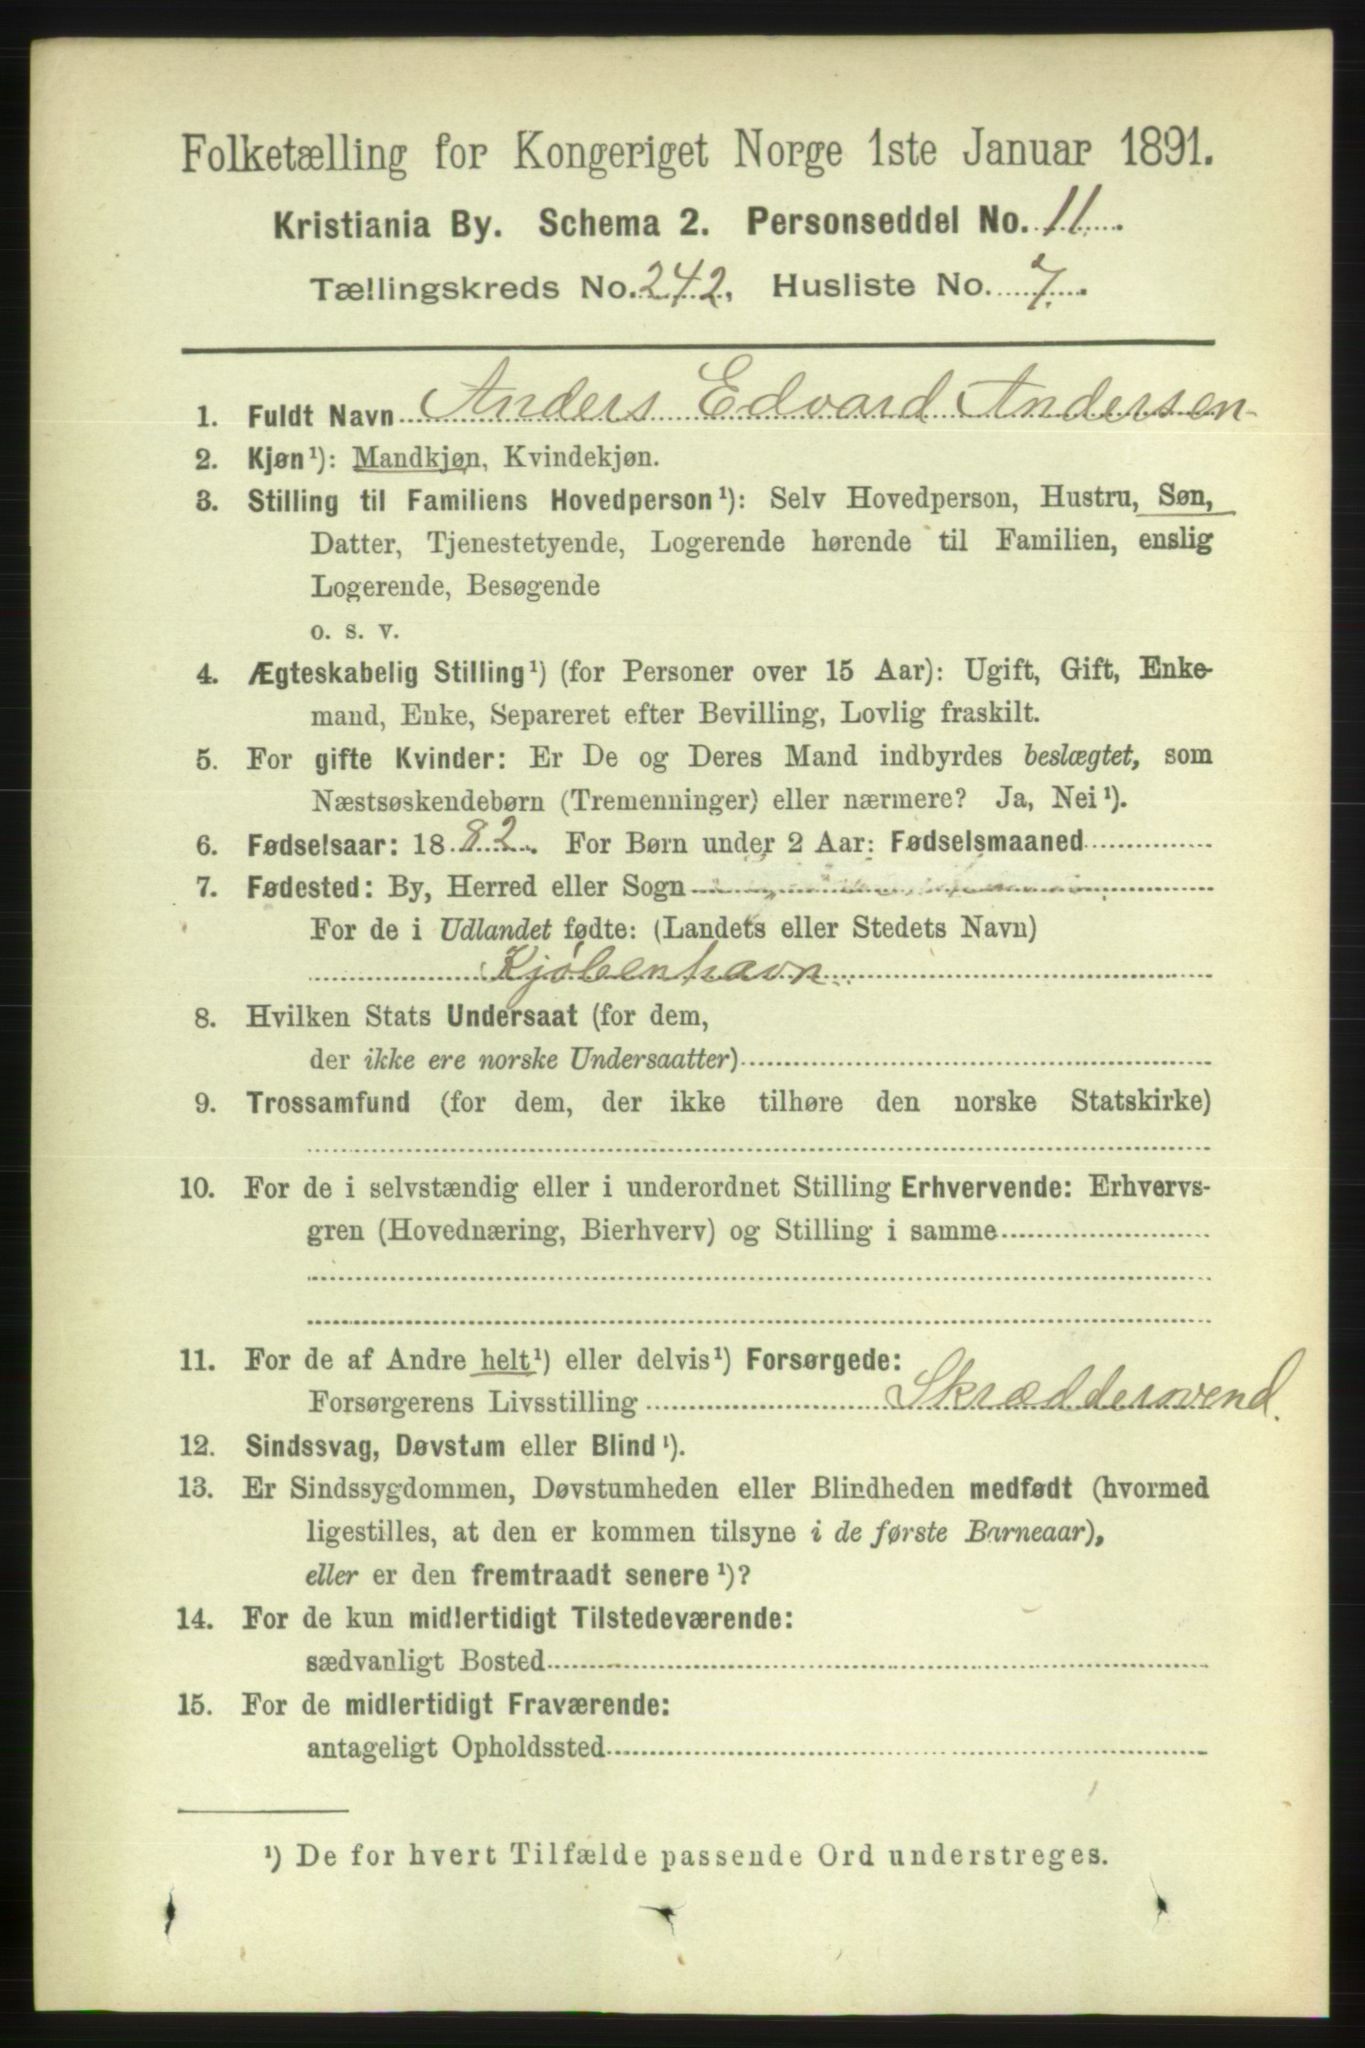 Folketælling for Kongeriget Norge 1ste Januar 1891.
Kristiania By. Schema 2. Personseddel No. 11.
Tællingskreds No. 242, Husliste No. 7.
1. Fuldt Navn Anders Edvard Andersen
2. Kjøn¹): Mandkjøn, Kvindekjøn.
3. Stilling til Familiens Hovedperson¹): Selv Hovedperson, Hustru, Søn,
Datter, Tjenestetyende, Logerende hørende til Familien, enslig
Logerende, Besøgende
o. s. v.
4. Ægteskabelig Stilling¹) (for Personer over 15 Aar): Ugift, Gift, Enke-
mand, Enke, Separeret efter Bevilling, Lovlig fraskilt.
5. For gifte Kvinder: Er De og Deres Mand indbyrdes beslægtet, som
Næstsøskendebørn (Tremenninger) eller nærmere? Ja, Nei¹).
6. Fødselsaar: 1882. For Børn under 2 Aar: Fødselsmaaned
7. Fødested: By, Herred eller Sogn
For de i Udlandet fødte: (Landets eller Stedets Navn)
Kjøbenhavn
8. Hvilken Stats Undersaat (for dem,
der ikke ere norske Undersaatter)
9. Trossamfund (for dem, der ikke tilhøre den norske Statskirke)
10. For de i selvstændig eller i underordnet Stilling Erhvervende: Erhvervs-
gren (Hovednæring, Bierhverv) og Stilling i samme
11. For de af Andre helt¹) eller delvis¹) Forsørgede:
Forsørgerens Livsstilling Skræddersvend.
12. Sindssvag, Døvstum eller Blind¹).
13. Er Sindssygdommen, Døvstumheden eller Blindheden medfødt (hvormed
ligestilles, at den er kommen tilsyne i de første Barneaar),
eller er den fremtraadt senere¹)?
14. For de kun midlertidigt Tilstedeværende:
sædvanligt Bosted
15. For de midlertidigt Fraværende:
antageligt Opholdssted
¹) De for hvert Tilfælde passende Ord understreges.